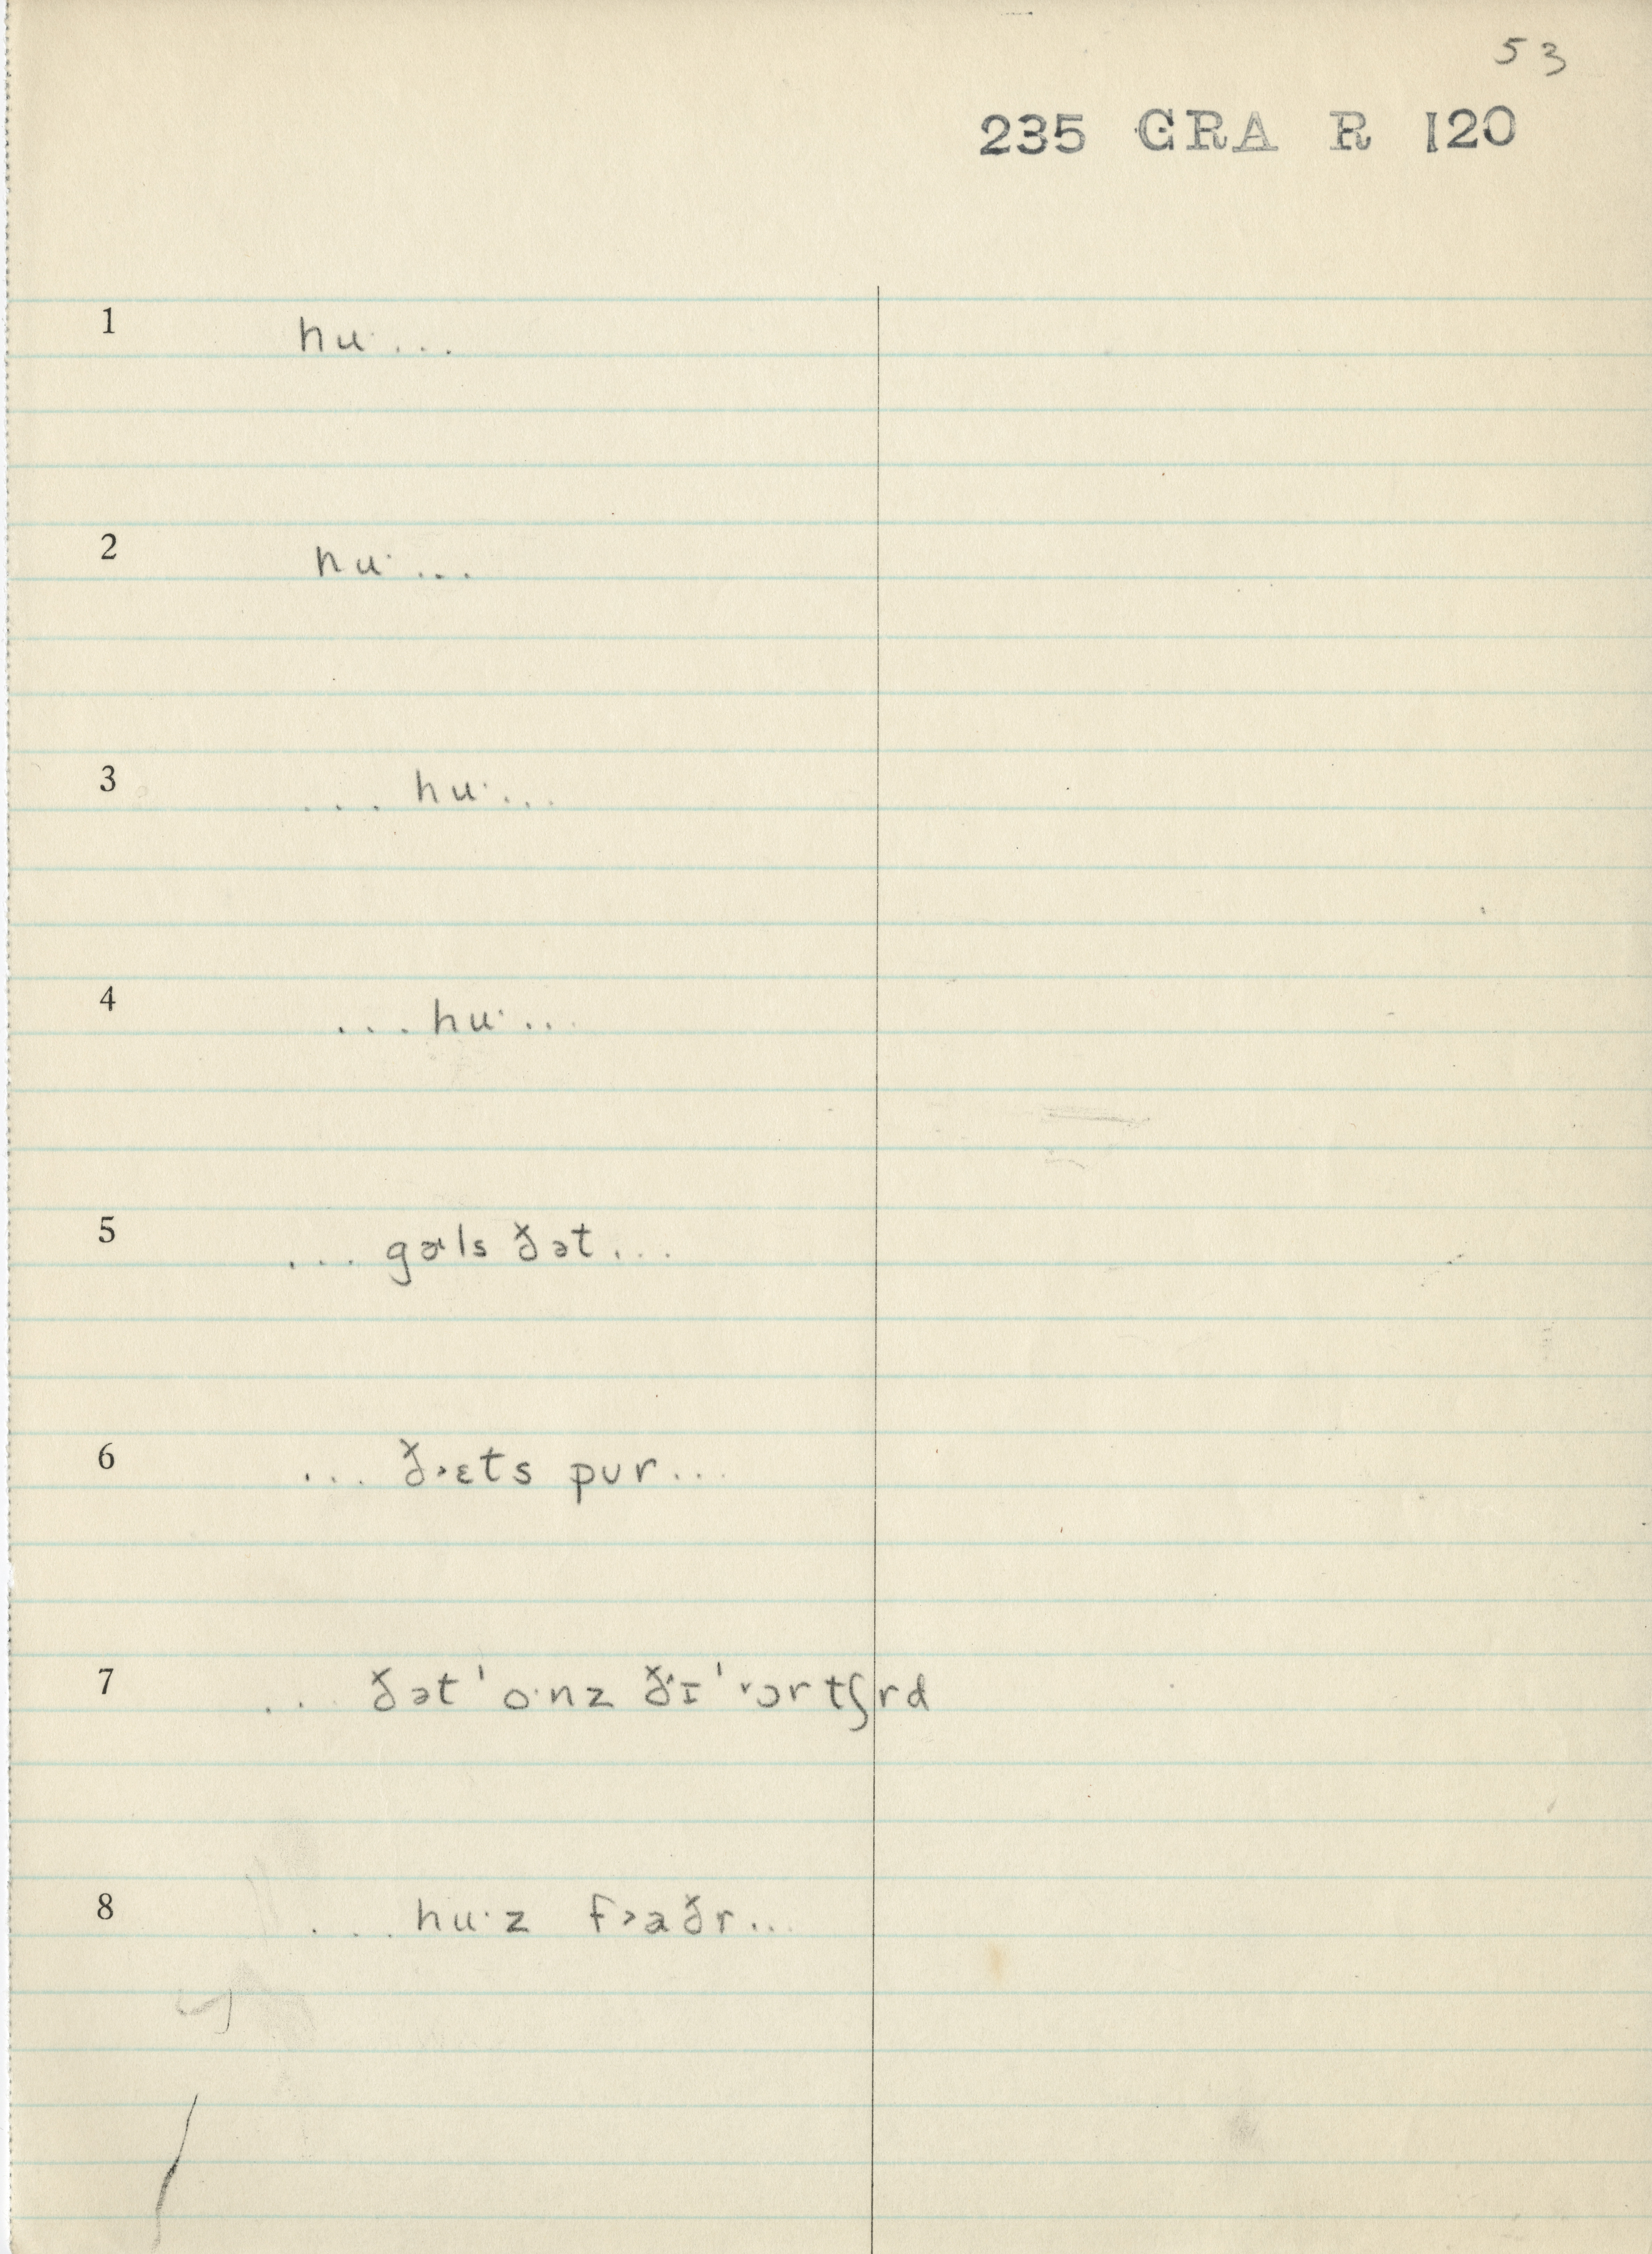 53
235 GRA R 120
1 huˑ...
2 huˑ...
3 ... huˑ...
4 ... huˑ...
5 ... gɚls ðət...
6 ... ð˃ɛts pur...
7 ... ðət ˈoˑnz ðˑɪ ˈ˅ɔrtʃrd
8 ... huˑz f˃aðr...